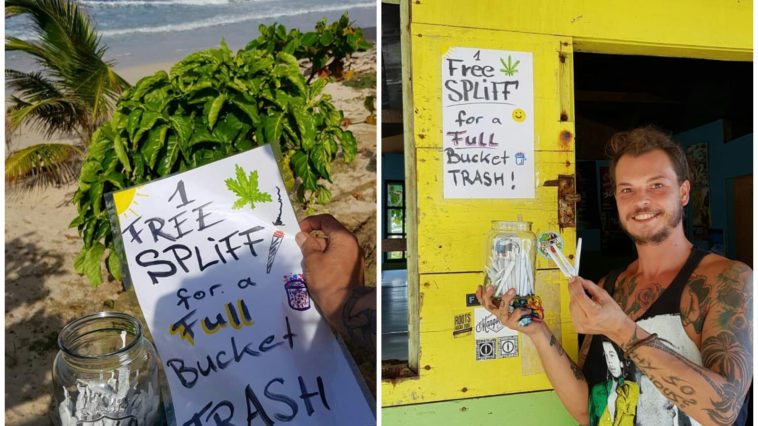 1
FREE
SPLiFF
for a
Full
Bucket
TRASH
1
Free
SPLiFF
for a
Full
Bucket
TRASH!
ROOTS